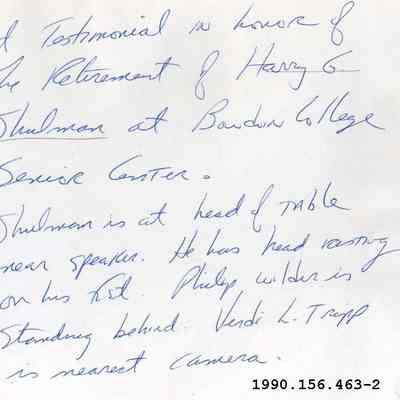 d Testimonial in honor of
he Retirement of Harry G
Shulman at Bowdoin College
Senior Center.
Shulman is at head of table
near speaker. He has head resting
on his fist. Philip Wilder is
Standing behind. Verdi L. Tripp
is nearest camera.
1990.156.463-2